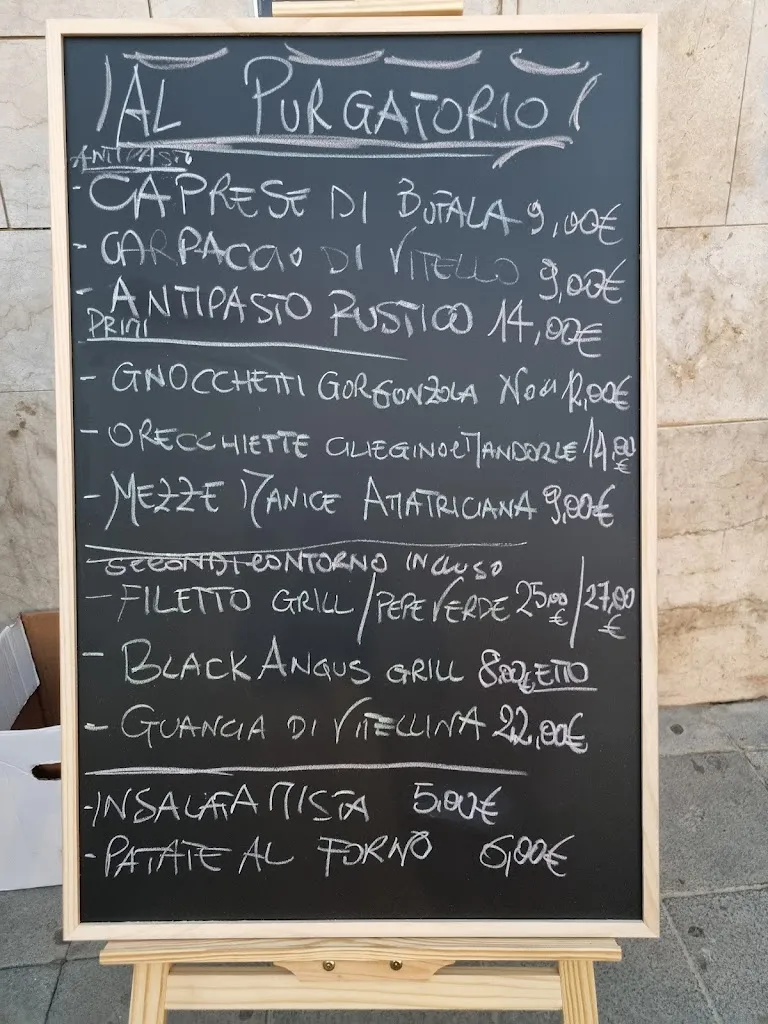 AL PURGATORIO
ANTIPASTI
- CAPRESE DI BUFALA 9,00€
- CARPACCIO DI VITELLO 9,00€
- ANTIPASTO RUSTICO 14,00€
PRIMI
- GNOCCHETTI GORGONZOLA NOCI 12,00€
- ORECCHIETTE CILIEGINO E MANDORLE 14,00€
- MEZZE MANICE AMATRICIANA 9,00€
SECONDI CONTORNO INCLUSO
- FILETTO GRILL/PEPE VERDE 25,00€/27,00€
- BLACK ANGUS GRILL 8,00€ ETTO
- GUANCIA DI VITELLINA 22,00€
- INSALATA MISTA 5,00€
- PATATE AL FORNO 6,00€